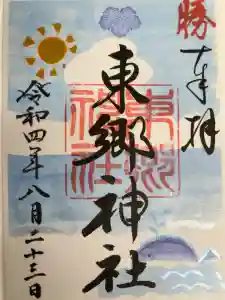 勝
奉拝
東郷神社
東郷神社
令和四年八月二十三日